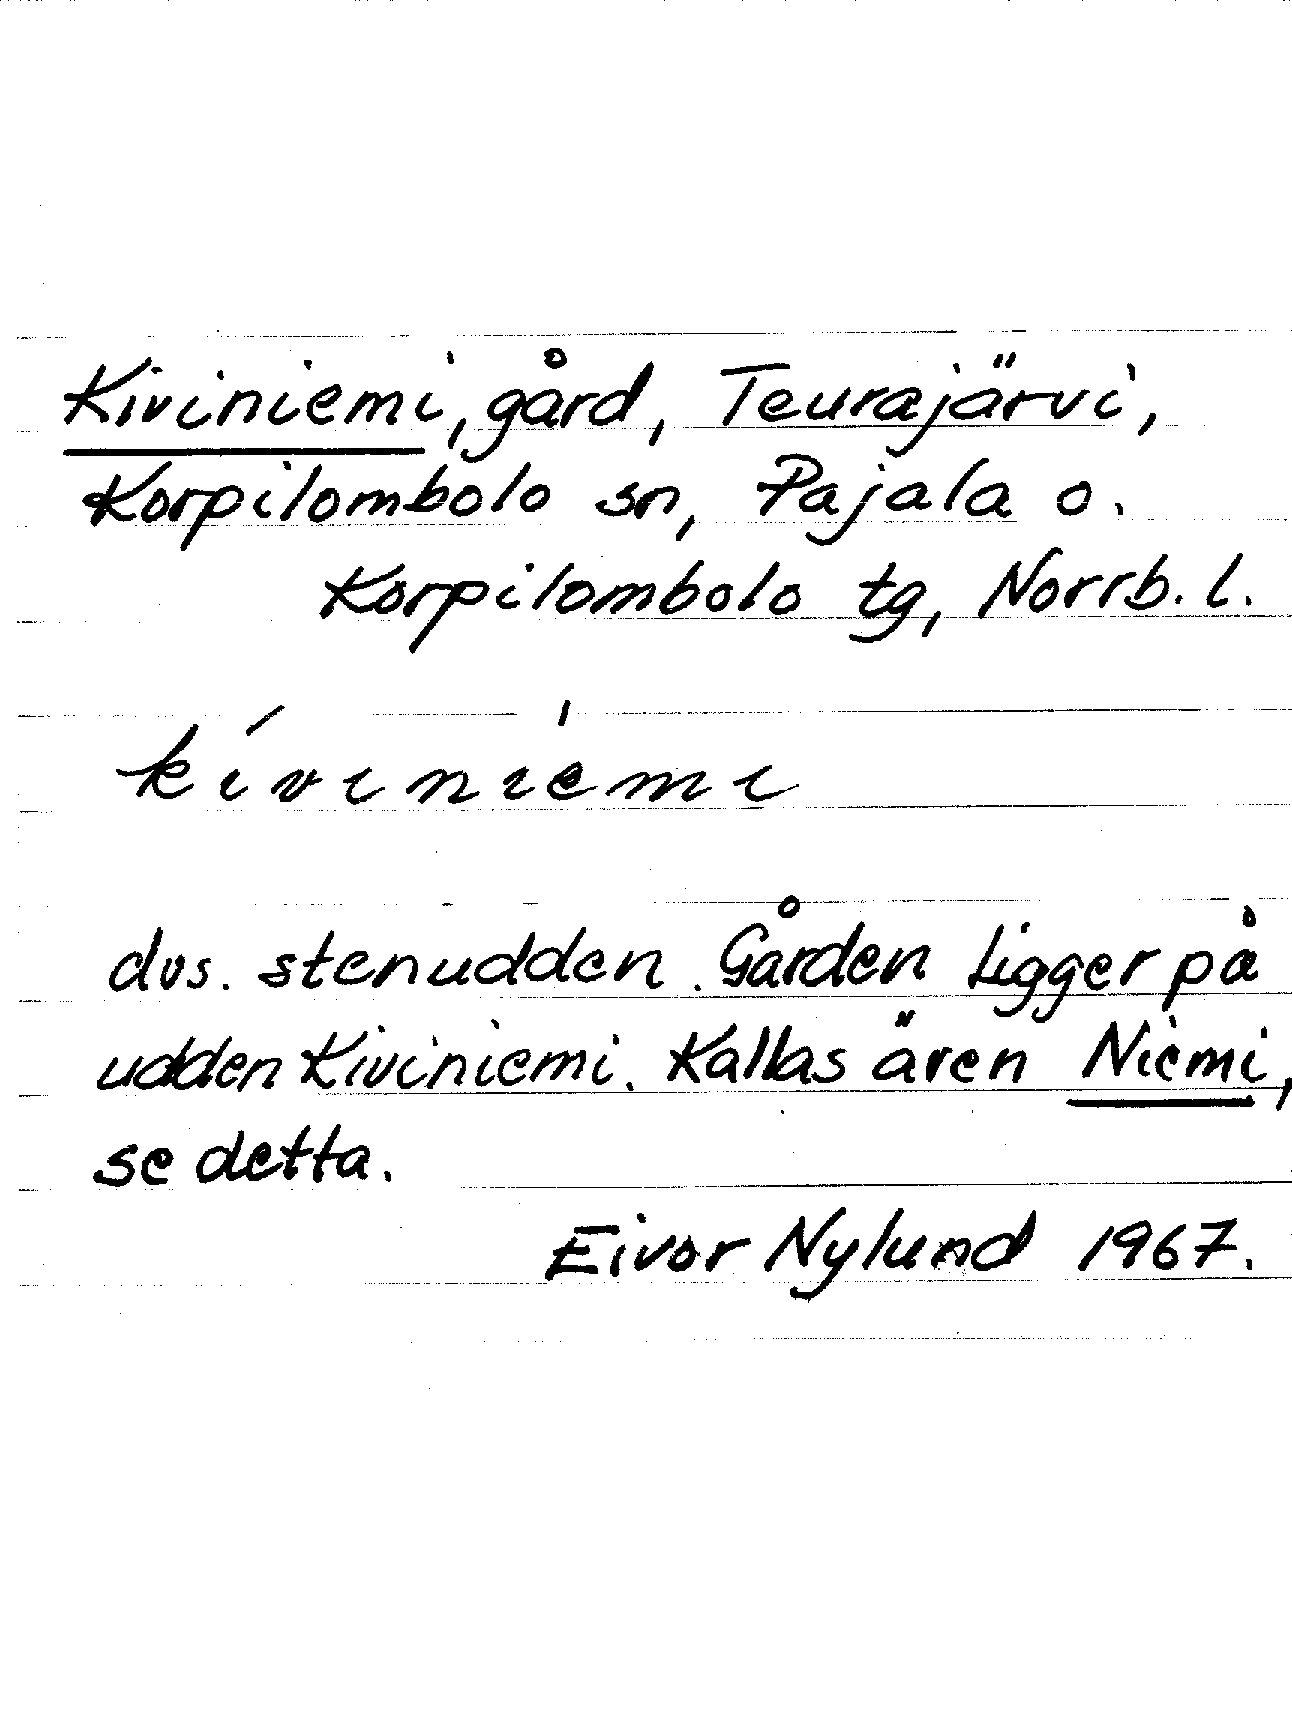 Kiviniemi, gård, Teurajärvi,
Korpilombolo sn, Pajala o.
Korpilombolo tg, Norrb. l.
kíviniémi
dvs. stenudden. Gården ligger på
udden Kiviniemi. Kallas även Niemi,
se detta.
Eivor Nylund 1967.